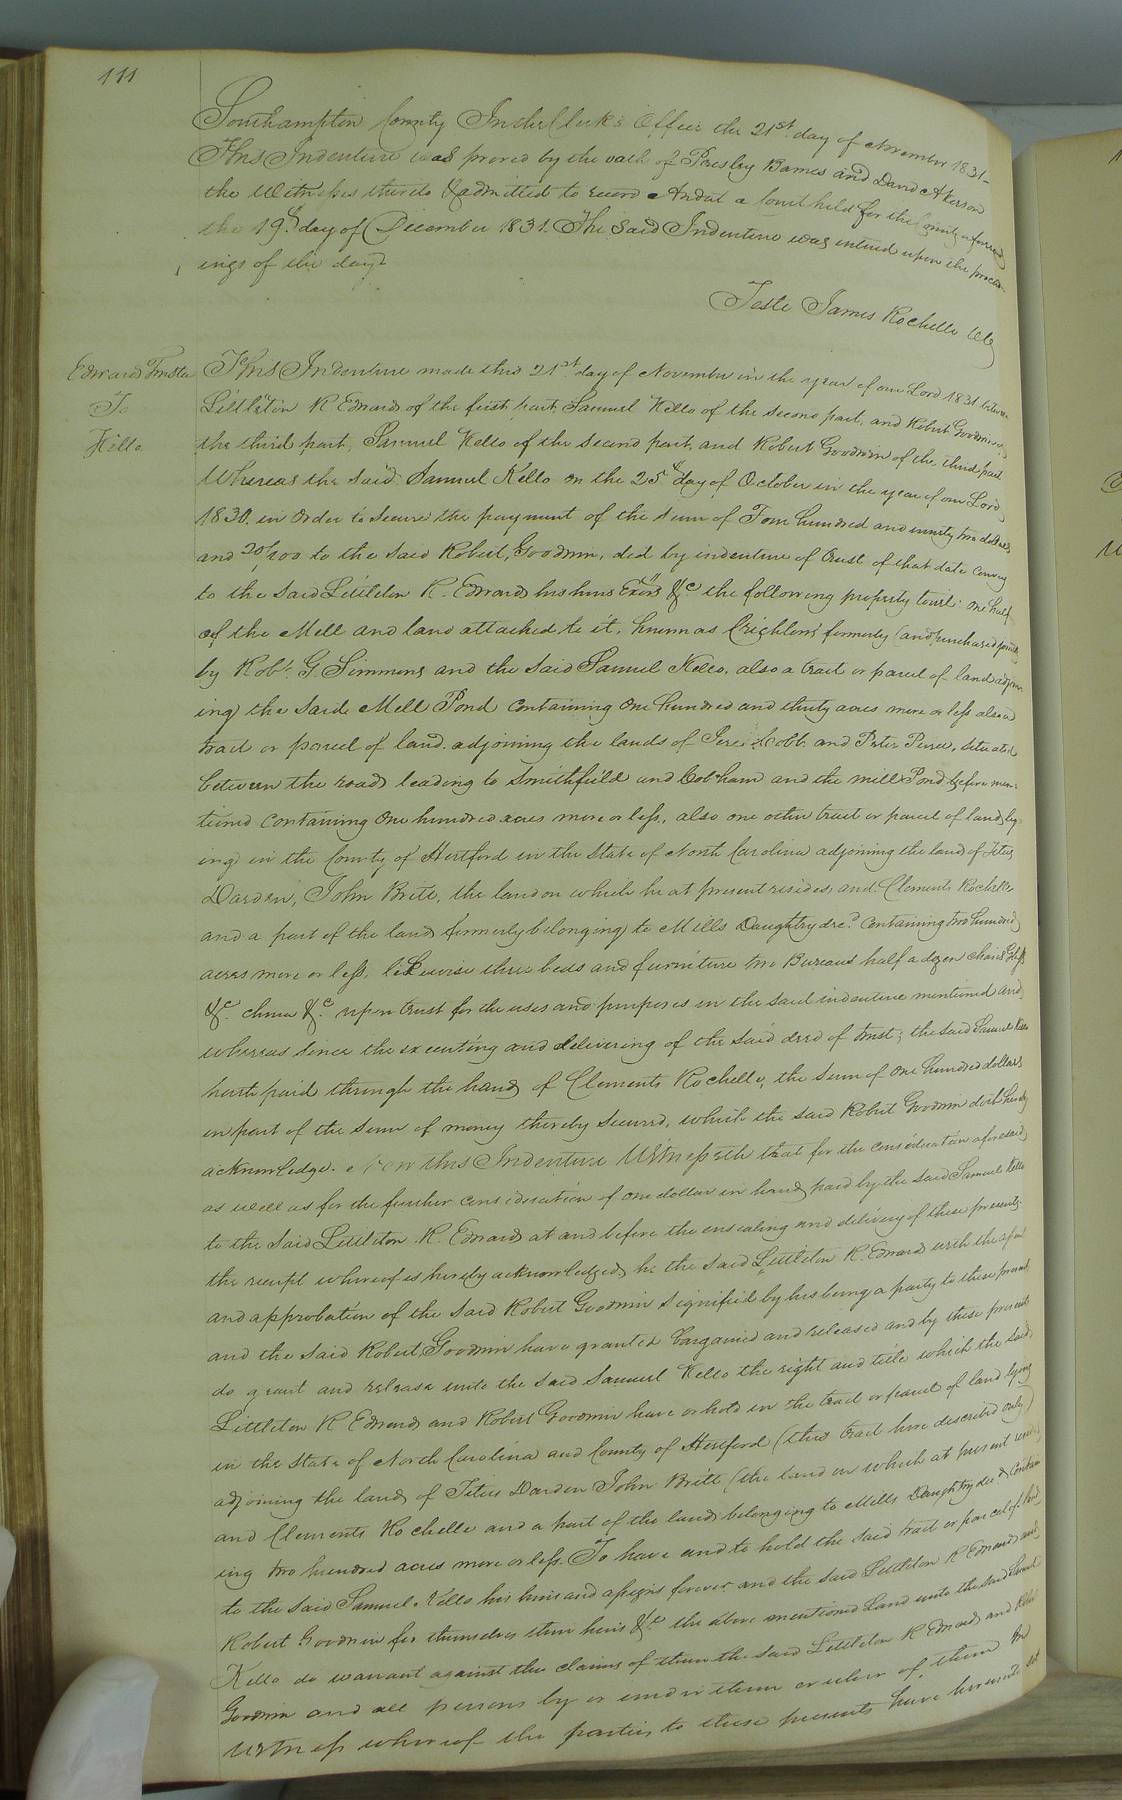 111
Southampton County In the Clerk's Office the 21st day of November 1831—
This Indenture was proved by the oath of Presley Barnes and David Akerson
the Witnesses thereto & admitted to record And at a Court held for the County aforesaid
the 19th day of December 1831. The Said Indenture was entered upon the proceed-
ings of the day
Teste James Rochelle Clk
Edwards Trustee
To
Kello
This Indenture made this 21st day of November in the year of our Lord 1831 between
Littleton R Edwards of the first part, Samuel Kello of the second part, and Robert Goodwin of
the third part, Samuel Kello of the second part, and Robert Goodwin of the third part
Whereas the said Samuel Kello on the 25th day of October in the year of our Lord
1830. in order to secure the payment of the sum of Four hundred and ninety two dollars
and 20/100 to the said Robert, Goodwin, did by indenture of trust of that date convey
to the said Littleton R. Edwards his heirs Exors &c the following property towit: one half
of the Mill and land attached to it, known as Crichlons formerly (and purchased jointly
by Robt. G. Simmons and the said Samuel Kello, also a tract or parcel of land adjoin
ing the said Mill Pond containing One hundred and thirty acres more or less also a
tract or parcel of land adjoining the lands of Jere Cobb and Peter Pierce, situated
between the roads leading to Smithfield and Cobham and the mill Pond before men-
tioned containing One hundred acres more or less, also one other tract or parcel of land ly-
ing in the County of Hertford in the State of North Carolina adjoining the land of Titus
Darden, John Britt, the land on which he at present resides, and Clements Rochelle,
and a part of the land formerly belonging to Mills Daughtry decd. containing two hundred
acres more or less, likewise three beds and furniture two Bureaus half a dozen chairs Glass
&c. china &c. upon trust for the uses and purposes in the said indenture mentioned and
whereas since the executing and delivering of the said deed of trust; the said Samuel Kello
hath paid through the hands of Clements Rochelle, the sum of One hundred dollars
in part of the sum of money thereby secured, which the said Robert Goodwin doth hereby
acknowledge. Now this Indenture Witnesseth that for the consideration aforesaid,
as well as for the further consideration of one dollar in hand paid by the said Samuel Kello
to the said Littleton R. Edwards at and before the ensealing and delivery of these presents.
the receipt whereof is hereby acknowledged, he the said Littleton R. Edwards with the
and approbation of the said Robert Goodwin signified by his being a party to these presents
and the said Robert, Goodwin have granted bargained and released and by these presents
do grant and release unto the said Samuel Kello the right and title which the said
Littleton R Edwards and Robert Goodwin have or hold in the tract or parcel of land lying
in the State of North Carolina and County of Hertford (this tract here described only)
adjoining the lands of Titus Darden John Britt (the land on which at present
and Clements Rochelle and a part of the lands belonging to Mills Daughtry decd. contain
ing two hundred acres more or less. To have and to hold the said tract or parcel of land
to the said Samuel. Kello his heirs and assigns forever and the said Littleton R Edwards and
Robert Goodwin for themselves their heirs &c the above mentioned Land unto the said Samuel
Kello do warrant against the claims of them the said Littleton R Edwards and Robert
Goodwin and all persons by or under them or either of them In
Witness whereof the parties to these presents have hereunto set